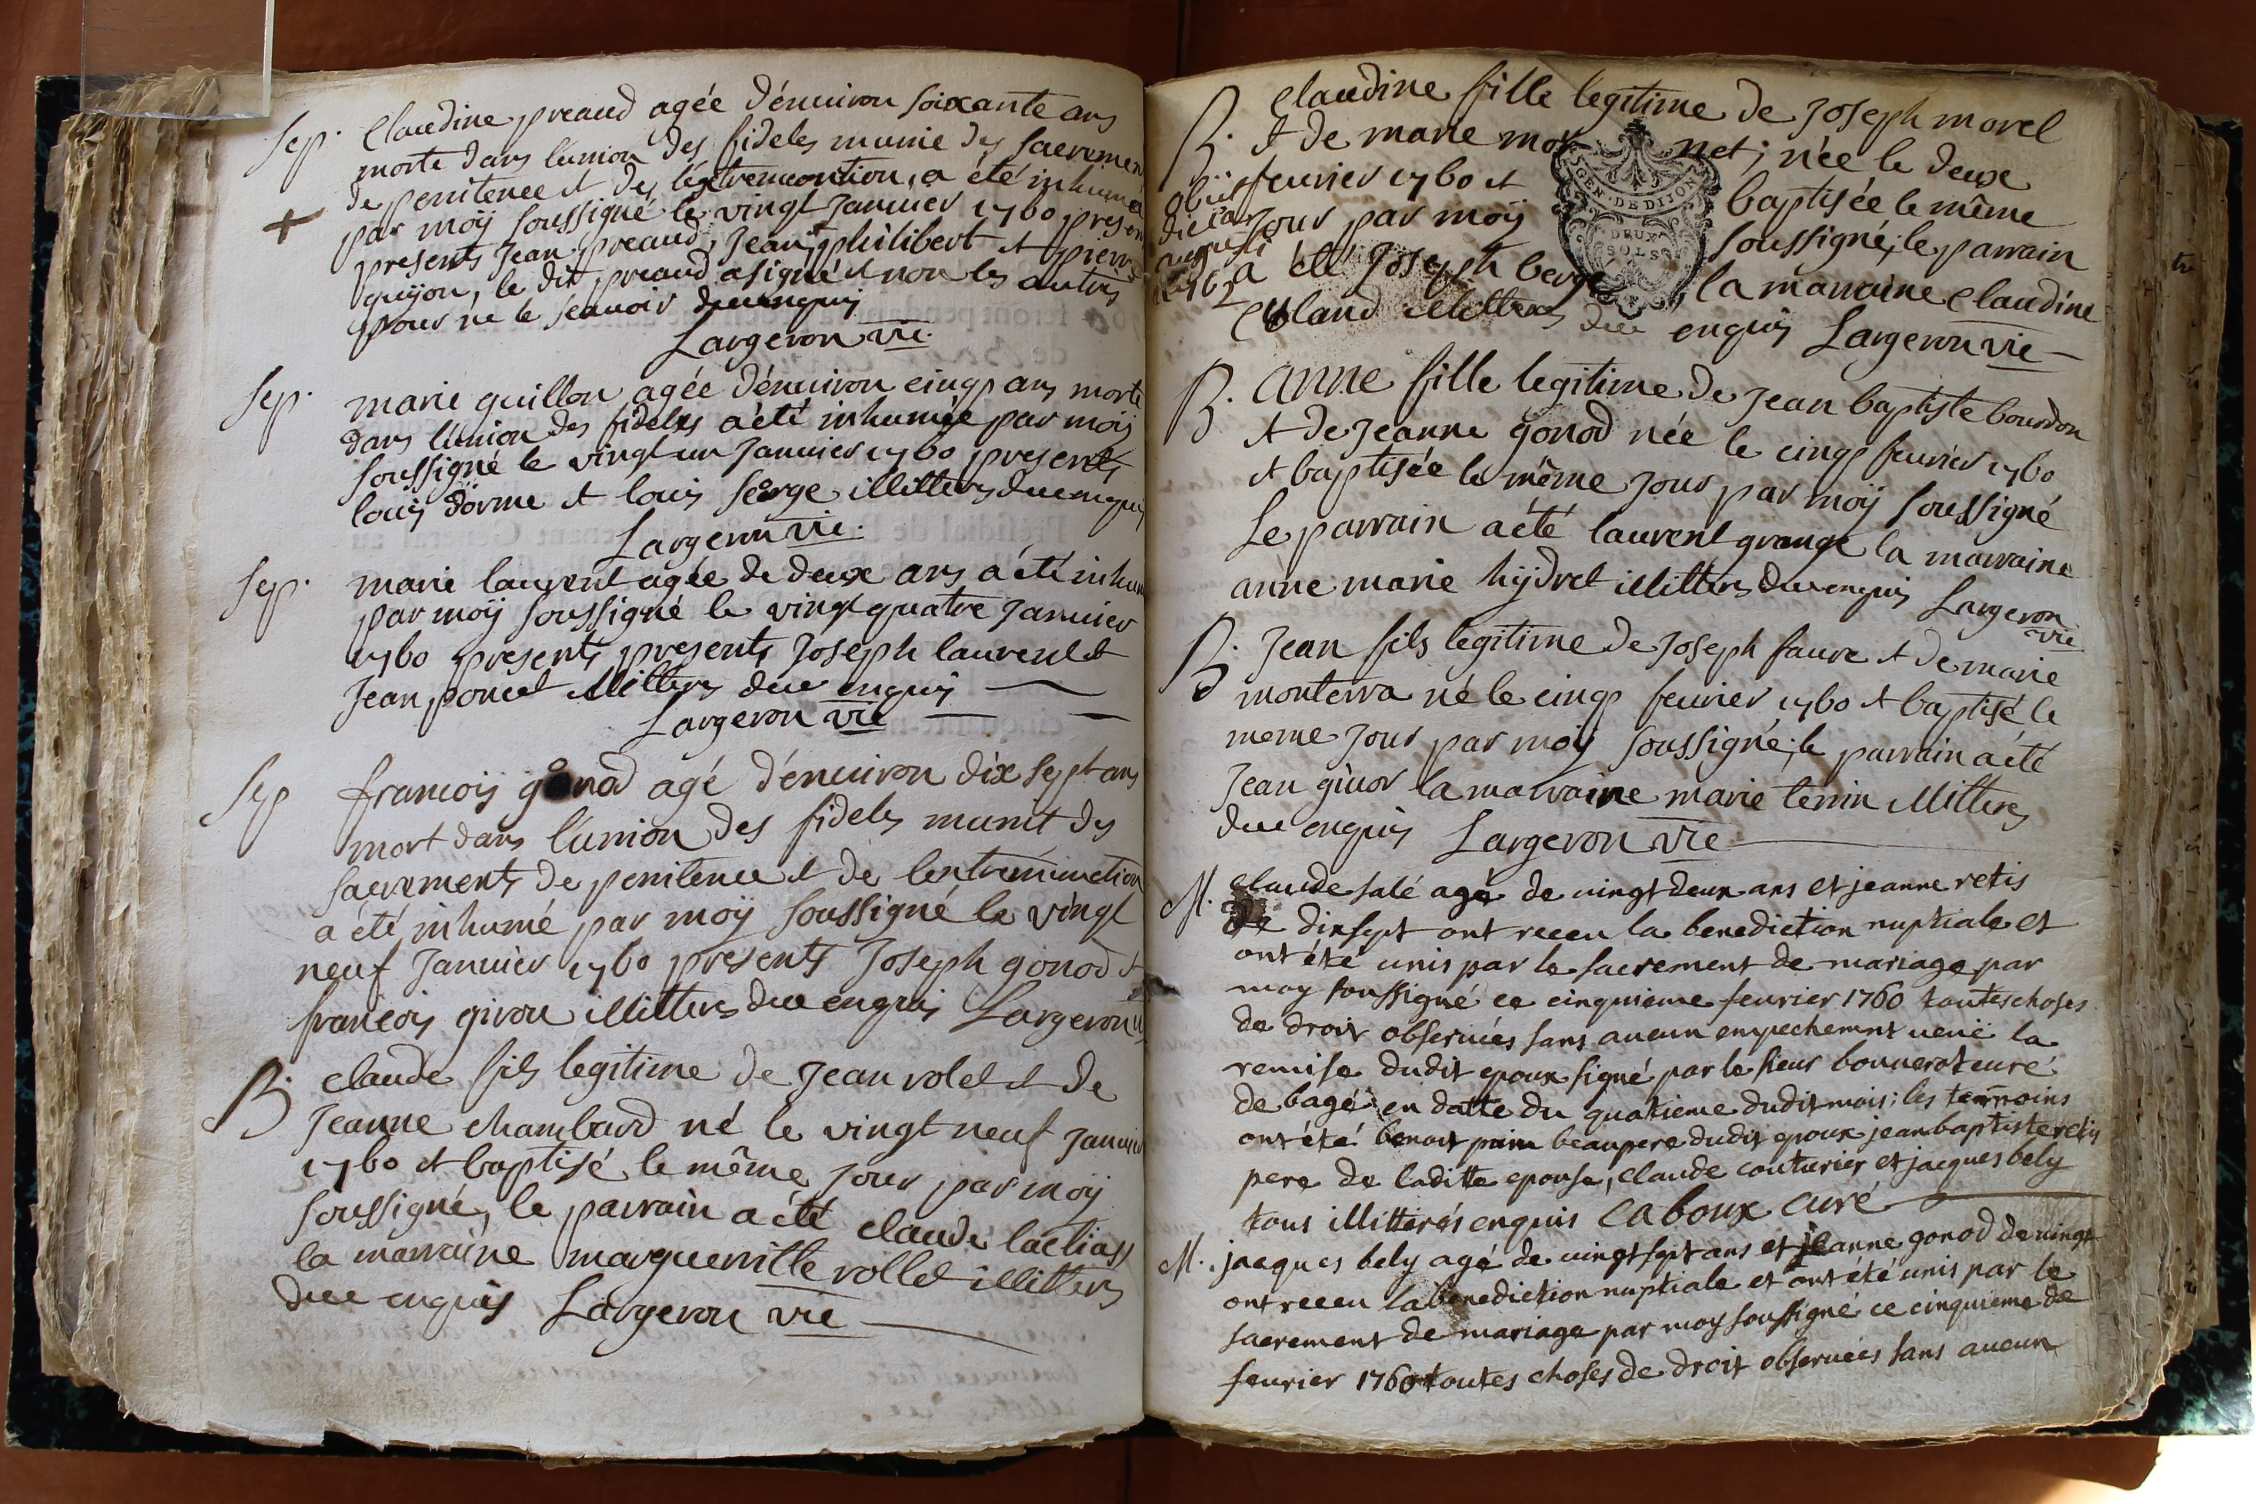 Sep. Claudine preaud agée d'énuiron soixante ans
morte dans l'union des fideles munie des sacremen
de penitence et de l'extremonction, a été inhumé
par moÿ soussigné le vingt Januier 1760 presen
presents Jean preaud, Jean philibert et pierre
guÿon, le dit preaud a signé et non les autres
pour ne le scauoir duenquis
Largeron vic.
Sep. marie guillon agée d'énuiron cinq ans morte
dans l'union des fideles a été inhumée par moÿ
soussigné le vingt un Januier 1760 presents
louis d'orme et louis serge illitters duenquis
Largeron vic.
Sep. marie laurent agée de deux ans a été inhum
par moÿ soussigné le vingt quatre Januier
1760 presents presents Joseph laurent et
Jean poncet illitters due enquis
Largeron vic
Sep francois gonod agé d'énuiron dix sept ans
mort dans l'union des fideles munit des
sacrements de penitence et de lextremunction
a été inhumé par moÿ soussigné le vingt
neuf Januier 1760 presents Joseph gonod et
francois giron illitters due enquis Largeron
B. claude fils legitime de Jean volet et de
Jeanne chambard né le vingt neuf Januier
1760 et baptisé le même Jour par moÿ
soussigné, le parrain a été claude
la marraine margueritte rollet illitters
due enquis Largeron vic
B. Claudine fille legitime de Joseph morel
et de marie mornet; née le deux
feurier 1760 et baptisée le même
Jour par moÿ soussigné; le parrain
a été Joseph berge, la marraine Claudine
illitters due enquis Largeron vic
obiit
die
1762
GEN. DE DIJON
DEUX
SOLS
B. anne fille legitime de Jean baptiste bourdon
et de Jeanne gonod née le cinq feurier 1760
et baptisée le même Jour par moÿ soussigné
Le parrain a été laurent grange la marraine
anne marie hÿdret illitters due enquis Largeron
vic
B. Jean fils legitime de Joseph faure et de marie
monterra né le cinq feurier 1760 et baptisé le
meme Jour par moÿ soussigné; le parrain a été
Jean giuor la marraine marie terrin illitters
due enquis Largeron vic
M. claude salé agé de uingt deux ans et jeanne retis
de dixsept ont receu la benediction nuptiale et
ont été unis par le sacrement de mariage par
moy soussigné ce cinquieme feurier 1760 toutes choses
de droit obseruées sans aucun empechemnt ueüe la
remise dudit epoux signé par le sieur bonnerot curé
de bagé en datte du quatrieme dudit mois; les temoins
ont été benoit beaupere dudit epoux jean baptiste retis
pere de laditte epouse, claude couturier et jacques bely
tous illitterés enquis Caboux curé
M. jacques bely agé de uingt sept ans et jeanne gonod de uingt
ont receu la benediction nuptiale et ont été unis par le
sacrement de mariage par moy soussigné ce cinquieme de
feurier 1760 toutes choses de droit obseruées sans aucun